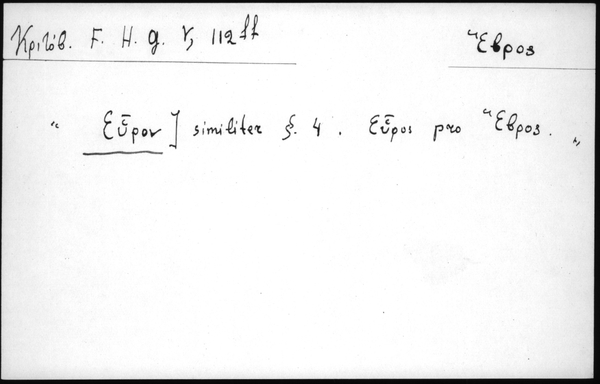 Κριτόβ. F. H. g. V, 112 ff
Ἕβρος
" Εὗρον] similiter §. 4. Εὗρος pro Ἕβρος. "